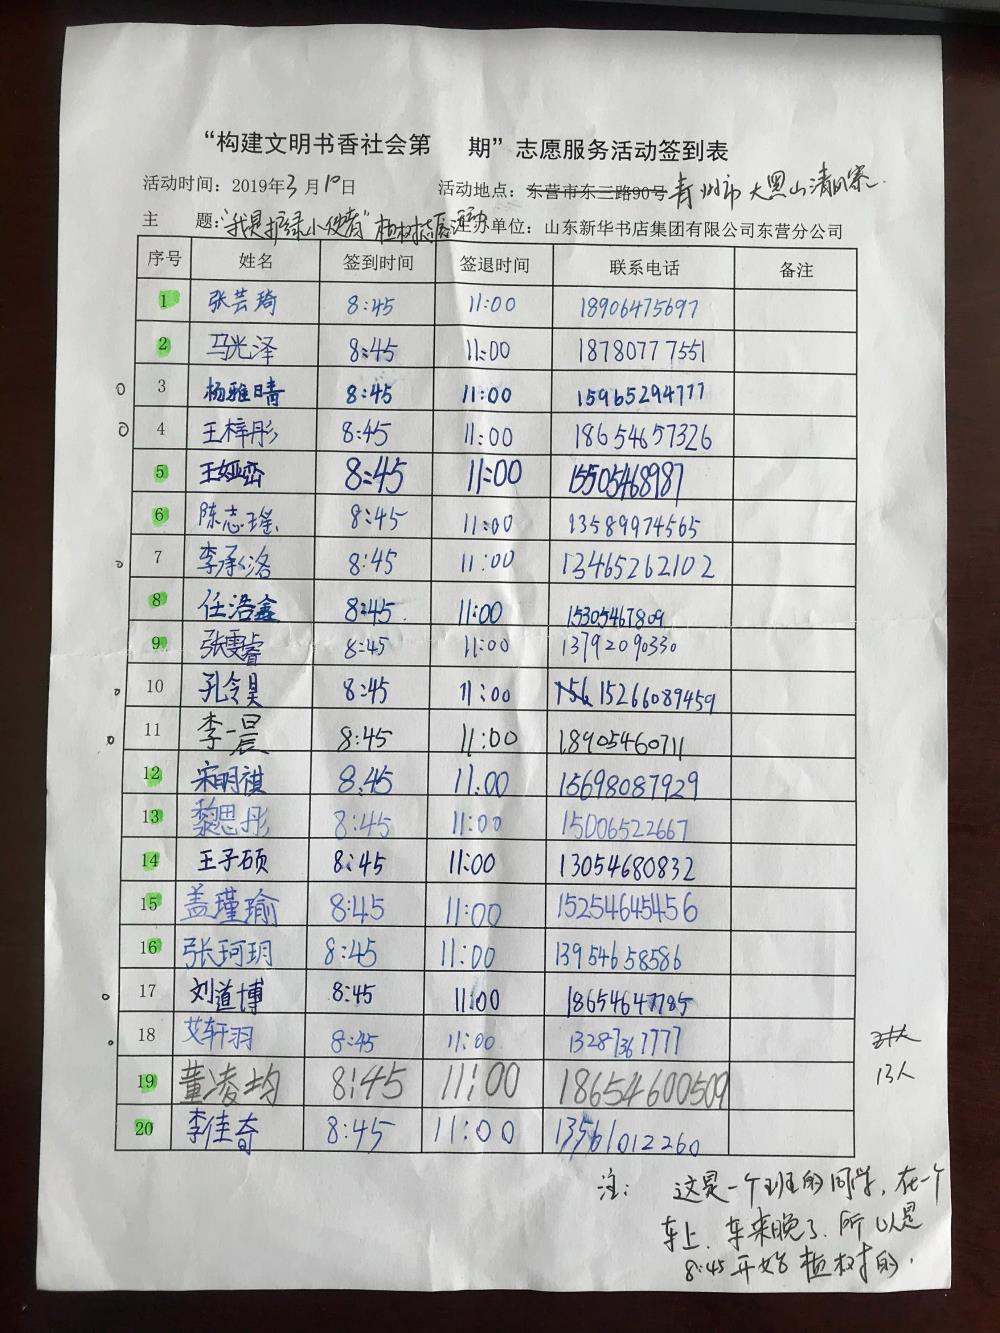 “构建文明书香社会第 期”志愿服务活动签到表
活动时间：2019年3月10日 活动地点：东营市东三路90号青州市大黑山清风寨
主 题：“我是护绿小使者”植树志愿活动 主办单位：山东新华书店集团有限公司东营分公司
序号 姓名 签到时间 签退时间 联系电话 备注
1 张芸琦 8:45 11:00 18906475697
2 马光泽 8:45 11:00 18780777551
3 杨雅晴 8:45 11:00 15965294777
4 王梓彤 8:45 11:00 18654657326
5 王娅峦 8:45 11:00 15505468987
6 陈志瑶 8:45 11:00 13589974565
7 李承洛 8:45 11:00 13465262102
8 任浩鑫 8:45 11:00 15305467809
9 张雯睿 8:45 11:00 13792090330
10 孔令昊 8:45 11:00 156 15266089459
11 李一晨 8:45 11:00 18905460711
12 宋明祺 8:45 11:00 15698087929
13 黎思彤 8:45 11:00 15006522667
14 王子硕 8:45 11:00 13054680832
15 盖瑾瑜 8:45 11:00 15254645456
16 张珂玥 8:45 11:00 13954658586
17 刘道博 8:45 11:00 18654647785
18 艾轩羽 8:45 11:00 13287367777
19 董凌均 8:45 11:00 18654600509
13人
20 李佳奇 8:45 11:00 13561012260
注：这是一个班的同学，在一个
车上，车来晚了，所以是
8:45开始植树的.